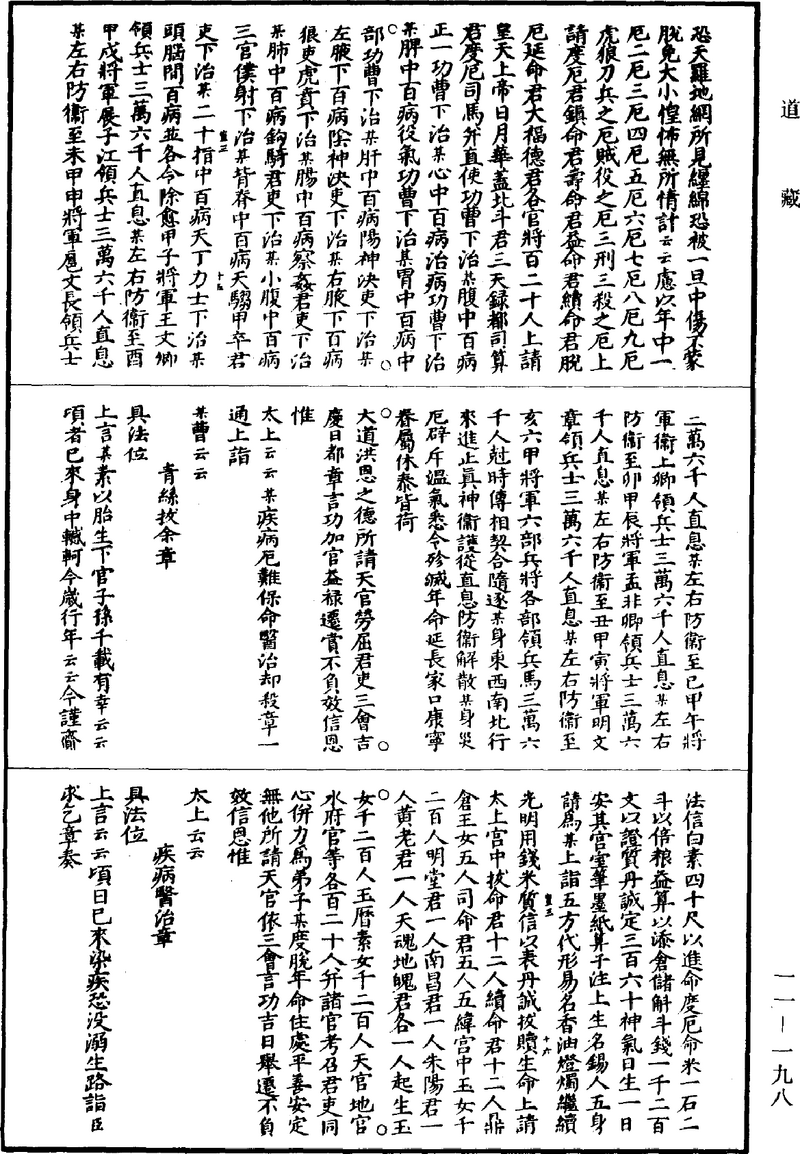 道藏
恐天羅地網所見纏綿恐被一旦中傷不蒙
脫免大小惶怖無所情計云云慮以年中一
厄二厄三厄四厄五厄六厄七厄八厄九厄
虎狼刀兵之厄賊役之厄三刑三殺之厄上
請度厄君鎮命君壽命君益命君續命君脫
厄延命君大福德君各官將百二十人上請
皇天上帝日月華蓋北斗君三天錄都司算
君度厄司馬并直使功曹下治某腹中百病
正一功曹下治某心中百病治病功曹下治
某脾中百病役氣功曹下治某胃中百病中
部功曹下治某肝中百病陽神決吏下治某
左腋下百病陰神決吏下治某右腋下百病
狼吏虎賁下治某腸中百病察姦君吏下治
某肺中百病鈎騎君吏下治某小腹中百病
三官僕射下治某背脊中百病天騶甲卒君
吏下治某二十指中百病天丁力士下治某
頭腦間百病並各令除愈甲子將軍王文卿
領兵士三萬六千人直息某左右防衛至酉
甲戌將軍展子江領兵士三萬六千人直息
某左右防衛至未甲申將軍扈文長領兵士
二萬六千人直息某左右防衛至巳甲午將
軍衛上卿領兵士三萬六千人直息某左右
防衛至卯甲辰將軍孟非卿領兵士三萬六
千人直息某左右防衛至丑甲寅將軍明文
章領兵士三萬六千人直息某左右防衛至
亥六甲將軍六部兵將各部領兵馬三萬六
千人尅時傳相契合隨逐某身東西南北行
來進止真神衛護從直息防衛解散某身災
厄辟斥溫氣悉令殄滅年命延長家口康寧
眷屬休泰皆荷
大道洪恩之德所請天官勞屈君吏三會吉
慶日都章言功加官益祿遷賞不負效信恩
惟
太上云云某疾病厄難保命醫治却殺章一
通上詣
某曹云云
青絲拔命章
具法位
上言某素以胎生下官子孫千載有幸云云
頃者已來身中轗軻今歲行年云云今謹齎
法信白素四十尺以進命度厄命米一石二
斗以倍粮益算以添倉儲斛斗錢一千二百
文以證質丹誠定三百六十神氣日生一日
安其宮室筆墨紙算子注上生名錫人五身
請為某上詣五方代形易名香油燈燭繼續
光明用錢米質信以表丹誠拔贖生命上請
太上宮中拔命君十二人續命君十二人鼎
倉王女五人司命君五人五緯宮中玉女千
二百人明堂君一人南昌君一人朱陽君一
人黃老君一人天魂地魄君各一人起生玉
女千二百人玉曆素女千二百人天官地官
水府官等各百二十人并諸官考召君吏同
心併力為弟子某度脫年命住處平善安定
無他所請天官依三會言功吉日舉遷不負
效信恩惟
太上云云
疾病醫治章
具法位
上言云云頃日已來染疾恐没溺生路詣臣
求乞章奏
一一—一九八